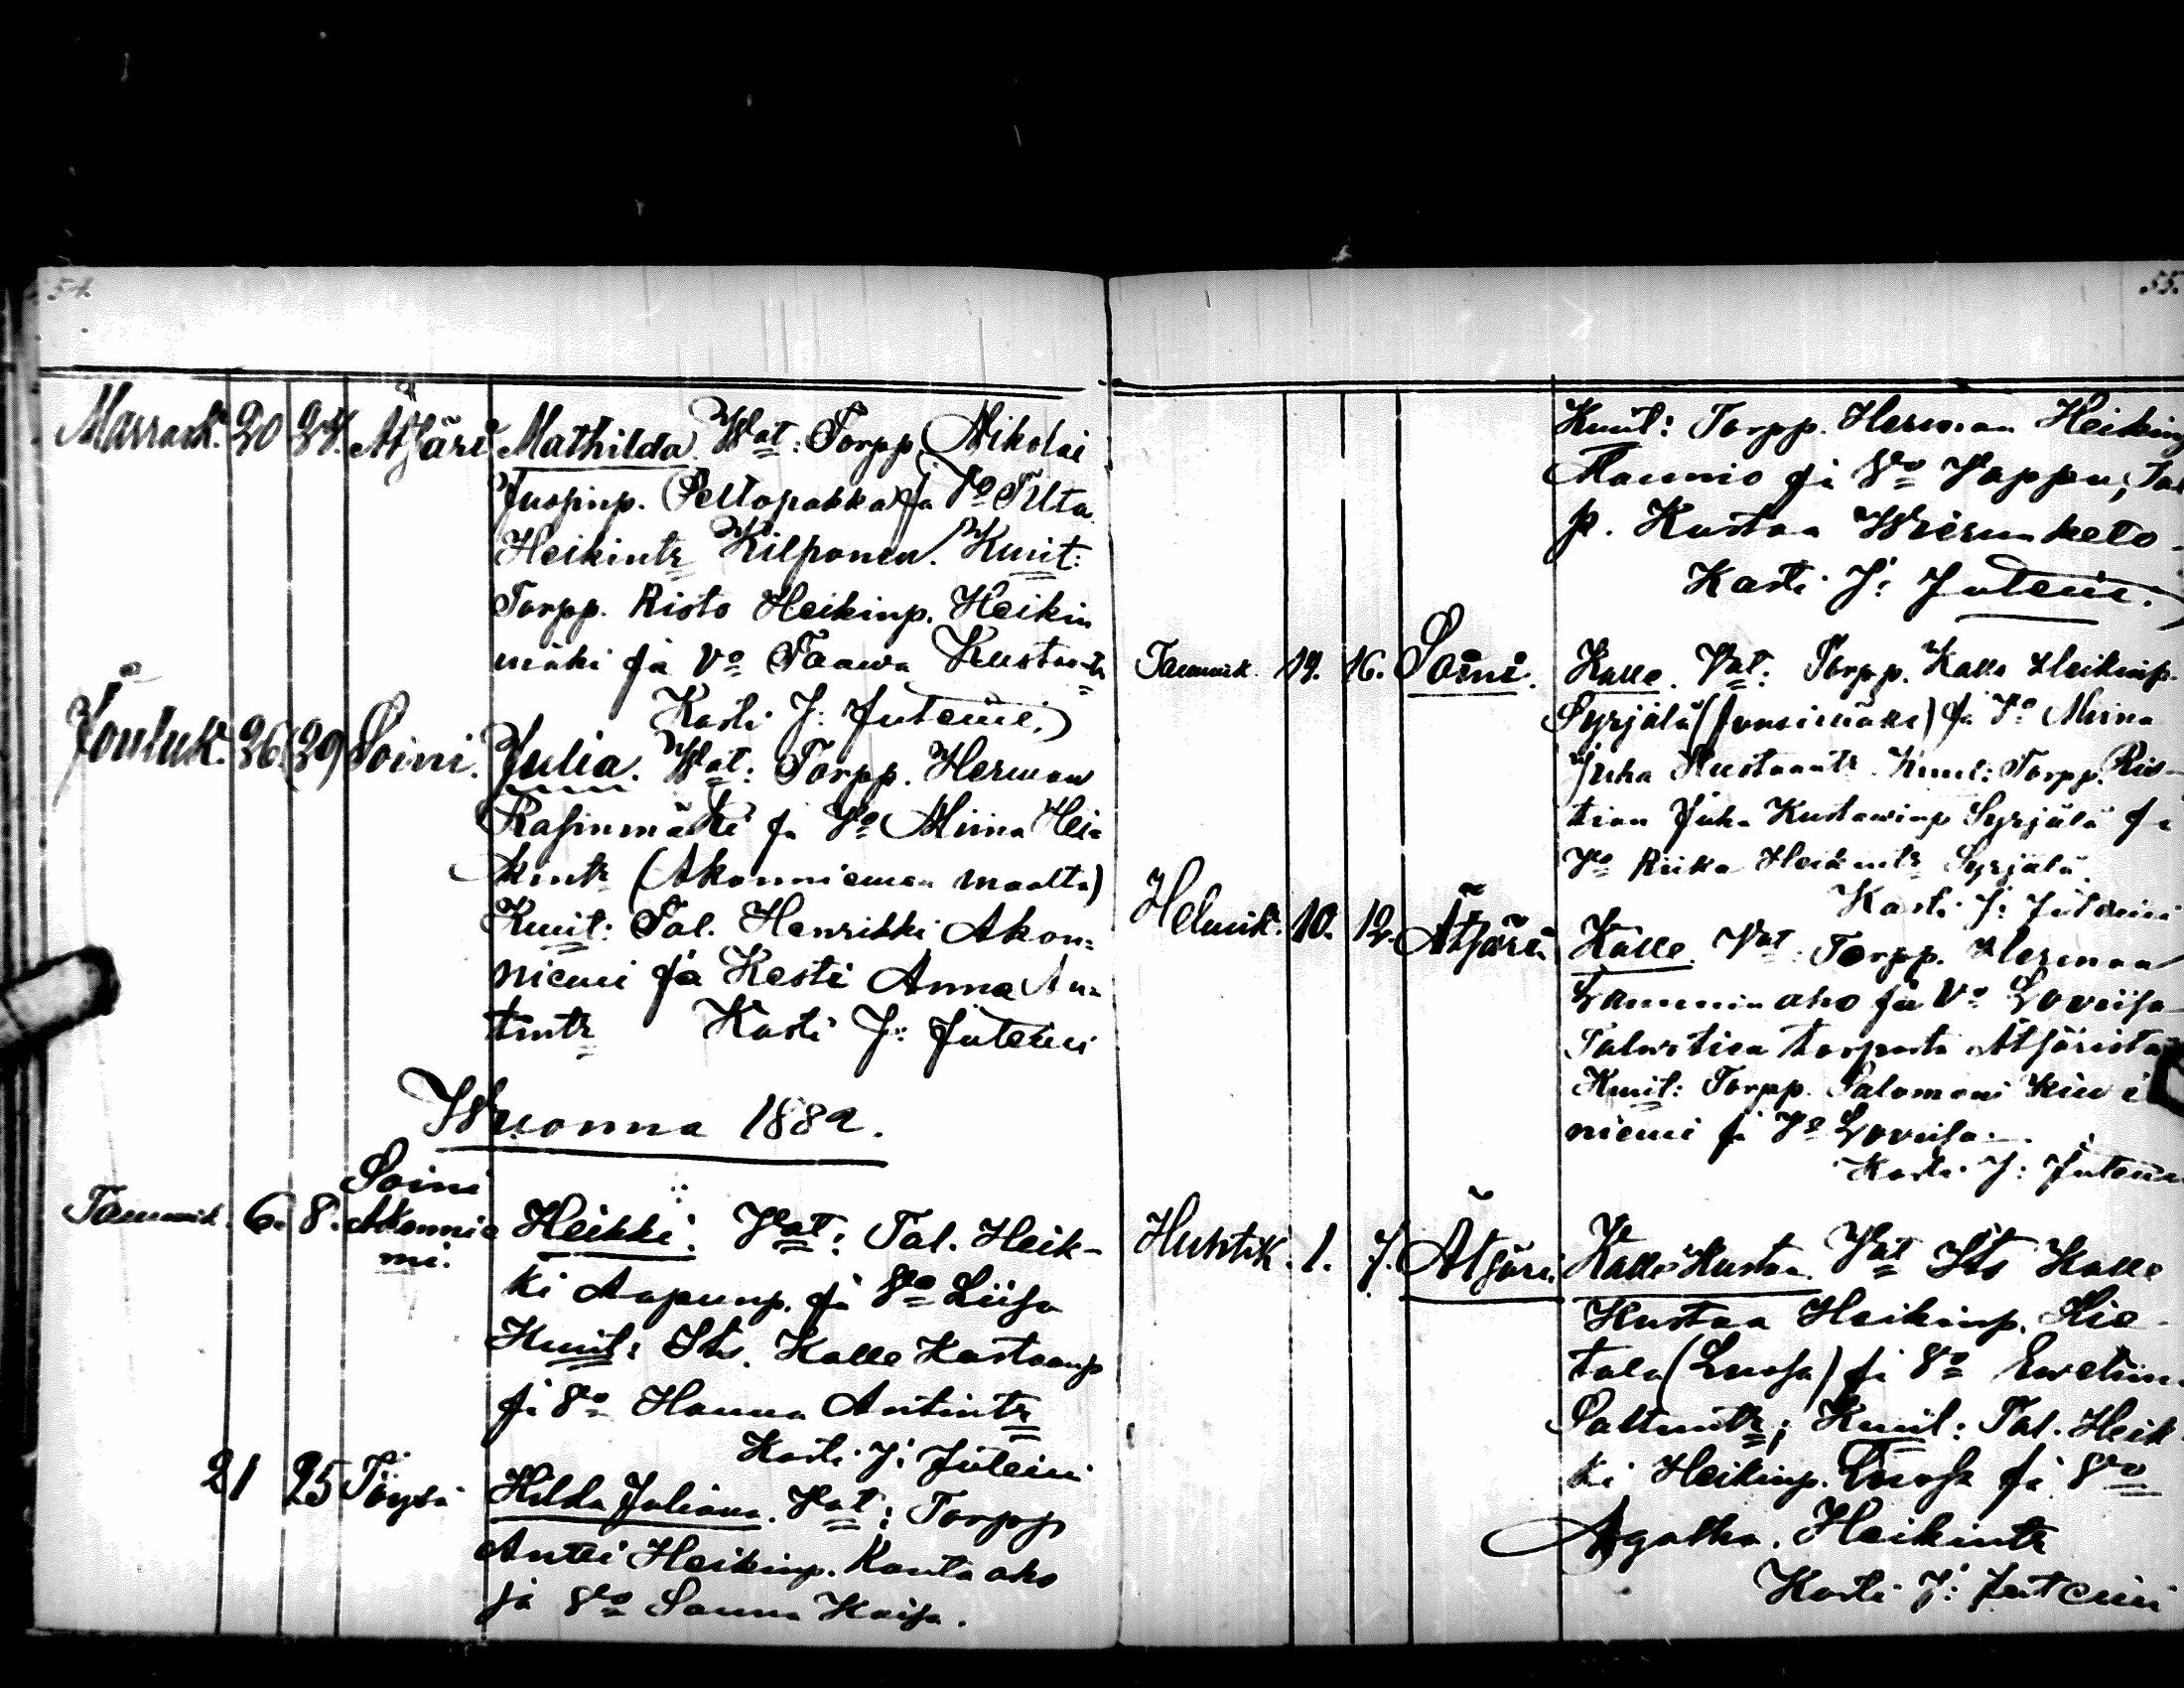 54.
Marrask. 20 24. Ätsäri Mathilda. Wat: Torpp. Nikolai
Juspinp. (Peltopakka) ja Vo Tilta
Heikintr Kilponen. Kmit:
Torpp. Risto Heikinp. Heikin
mäki ja Vo Taawa Kustaatr
Kasti J: Juteini.
Jouluk. 26. (29) Soini. Julia. Wat: Torpp. Herman
Rasinmäki ja Vo Miina Hei=
kintr (Akonniemen maalta)
Kmit: Tal. Henrikki Akon=
niemi ja Kesti Anna An=
tintr Kasti J: Juteini
Wuonna 1882.
Soini
Tammik. 6. 8. Akonnie Heikki. Vat: Tal. Heik-
mi.
ki Aapunp. ja Vo Liisa
Kmit: Kalle Kustaanp
ja Vo Hanna Antintr
Kasti J: Juteini
21 25 Töysä Hilda Juliana. Vat: Torpp
Antti Heikinp. Rauta aho
ja Vo Sanna Kaisa.
55.
Kmit: Torpp. Herman Heikinp
Maunio ja Vo Vappu; Tal
p. Kustaa Wierunketo-
Kasti J: Juteini.
Tammik. 19. 16. Soini. Kalle. Vat: Torpp. Kalle Heikinp.
Syrjälä ja Vo Miina
Juha Kustaantr. Kmit: Torpp. Ris-
tian Juha Kustawinp Syrjälä ja
Vo Riika Heikintr Syrjälä.
Kasti J: Juteini
Helmik. 10. 12. Ätsäri Kalle. Vat: Torpp. Herman
Lamminaho ja Vo Loviisa
torpasta Ätsäristä
Kmit: Torpp. Salomoni Kiwi
niemi ja Vo Loviisa.
Kasti J: Juteini
Huhtik. 1. 7. Ätsäri. Kalle Kustaa. Vat Kalle
Kustaa Heikinp. Hie-
tala ja Vo Ewelina
Kmit: Tal. Heik-
ki Heikinp. ja Vo
Agatha. Heikintr
Kasti J: Juteini